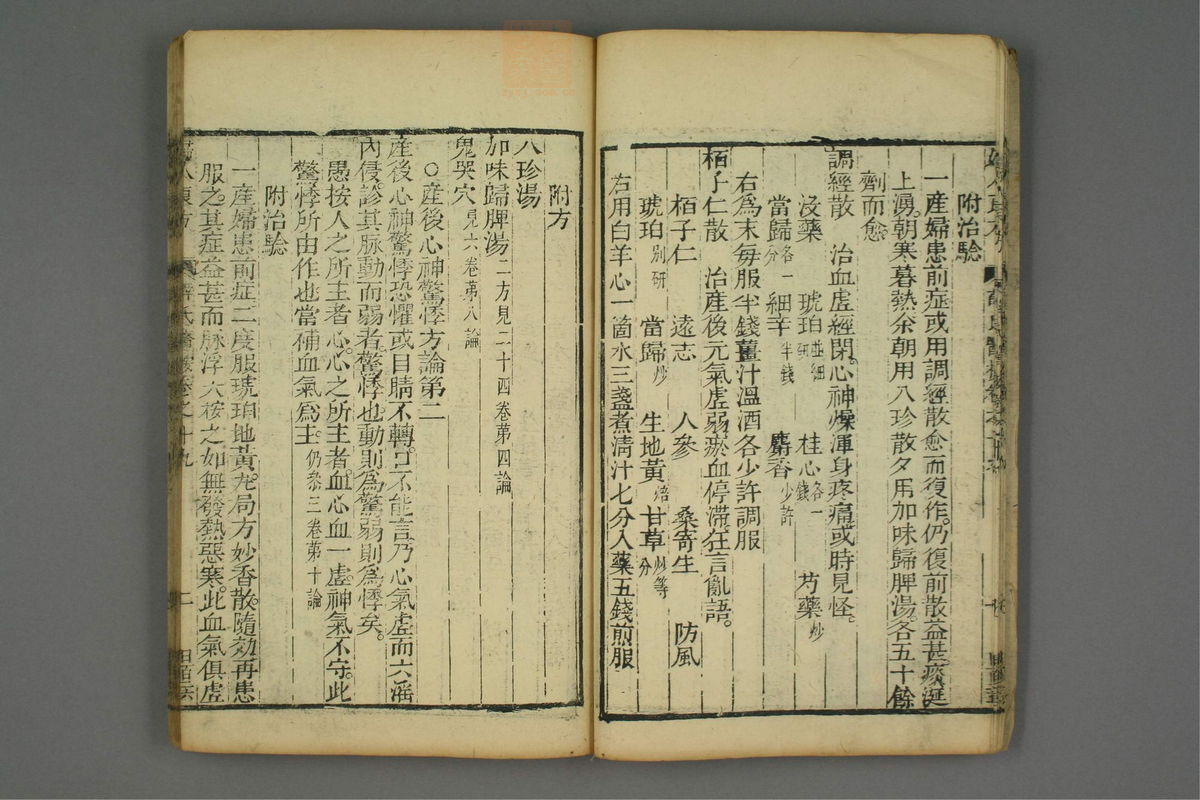 附治驗
一產婦患前症或用調經散愈而復作仍復前散益甚痰涎
上湧朝寒暮熱余朝用八珍散夕用加味歸脾湯各五十餘
劑而愈
調經散 治血虛經閉心神燥渾身疼痛或時見怪
沒藥 琥珀並細研 桂心各一錢 芍藥炒
當歸各一分 細辛半錢 麝香少許
右爲末每服半錢薑汁溫酒各少許調服
栢子仁散 治產後元氣虛弱瘀血停滯狂言亂語
栢子仁 遠志 人參 桑寄生 防風
琥珀別研 當歸炒 生地黃焙 甘草炒等分
右用白羊心一箇水三盞煮清汁七分入藥五錢煎服
附方
八珍湯
加味歸脾湯二方見二十四卷第四論
鬼哭穴見六卷第八論
○產後心神驚悸方論第二
產後心神驚悸恐懼或目睛不轉口不能言乃心氣虛而六淫
內侵診其脉動而弱者驚悸也動則爲驚弱則爲悸矣
愚按人之所主者心心之所主者血心血一虛神氣不守此
驚悸所由作也當補血氣爲主仍叅三卷第十論
附治驗
一產婦患前症二度服琥珀地黃丸局方妙香散隨効再患
服之其症益甚而脉浮大按之如無發熱惡寒此血氣俱虛